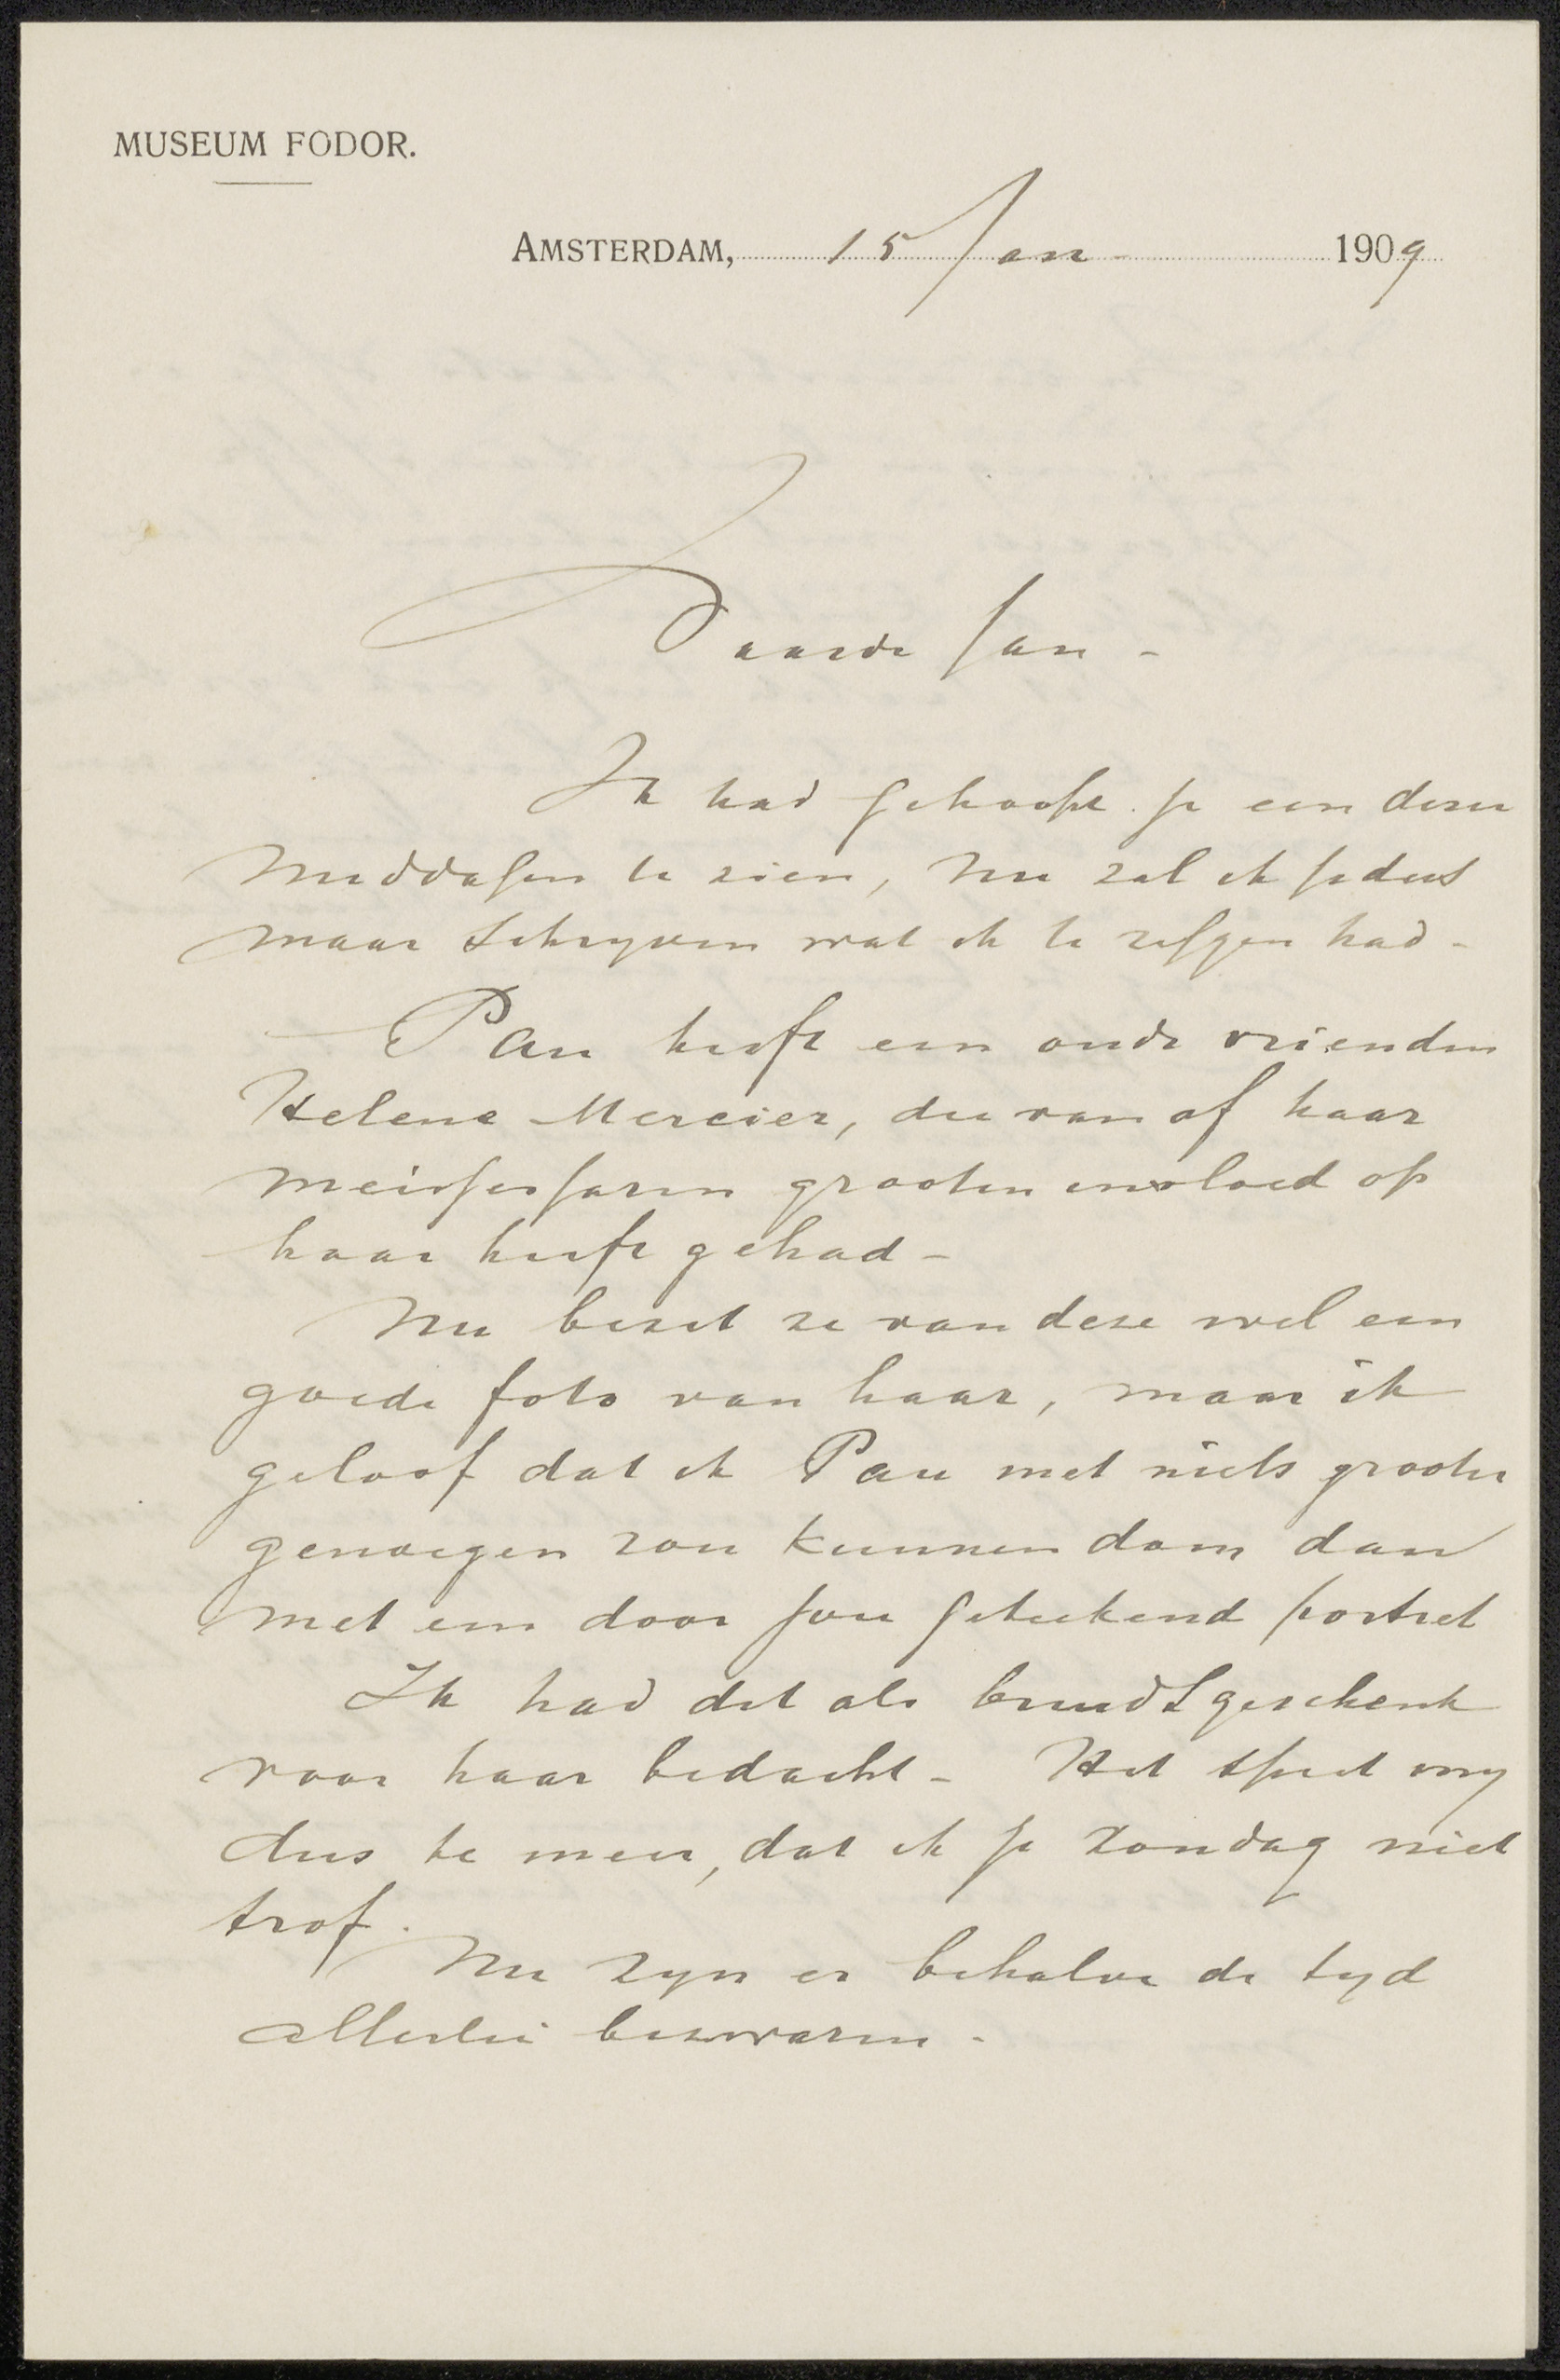 MUSEUM FODOR.
AMSTERDAM, 15 Jan - 1909
Waarde Jan -
Ik had gehoopt je een dezer
middagen te zien, nu zal ik je dus
maar schryven wat ik te zeggen had -
Pau heeft een oude vriendin
Helene Mercier, die van af haar
meisjesjaren grooten invloed op
haar heeft gehad -
Nu bezit ze van deze wel een
goede foto van haar, maar ik
geloof dat ik Pau met niets grooter
genoegen zou kunnen doen dan
met een door jou geteekend portret
Ik had dit als bruidsgeschenk
voor haar bedacht - Het speet my
dus te meer, dat ik je Zondag niet
trof.
Nu zyn er behalve de tyd
allerlei bezwaren -